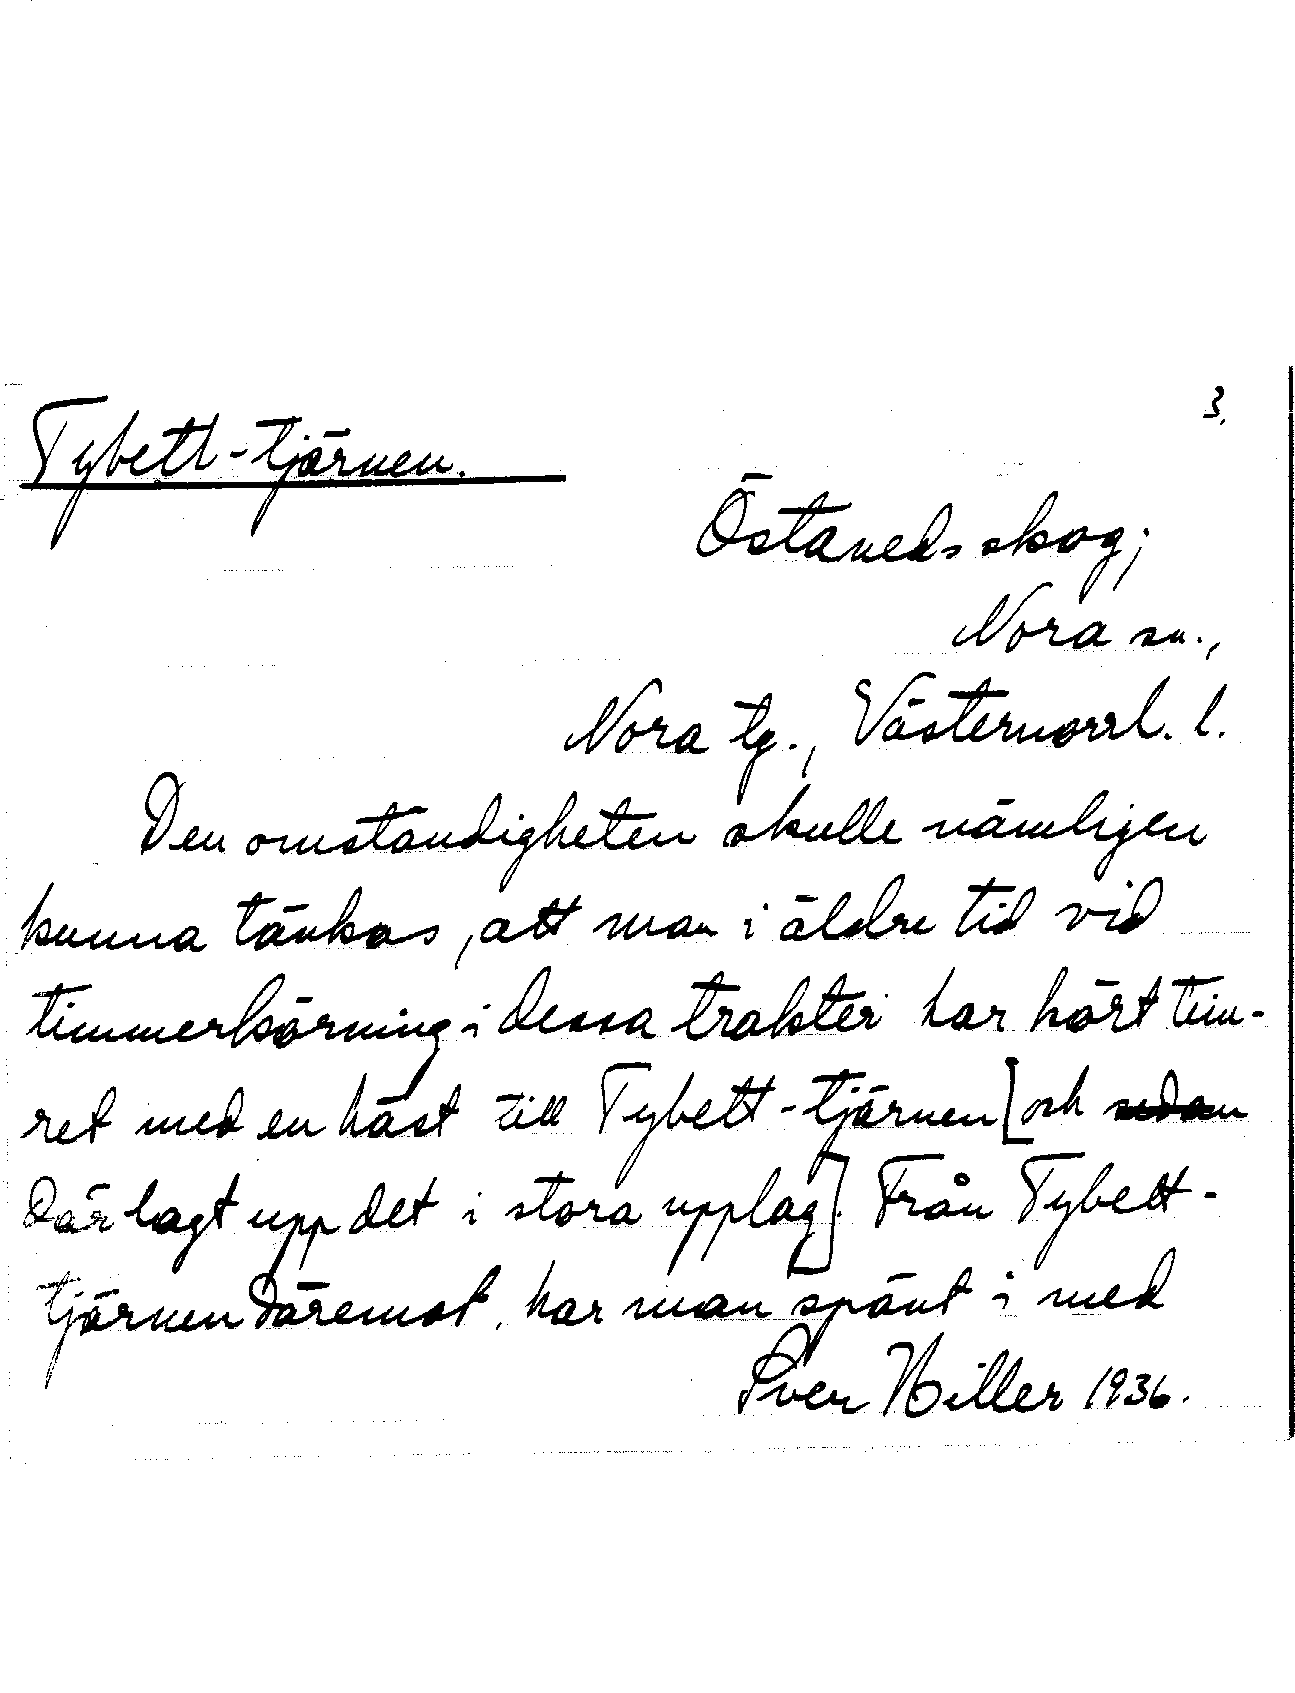 3.
Tybett-tjärnen.
Östaneds skog;
Nora sn.,
Nora tg., Västernorrl. l.
Den omständigheten skulle nämligen
kunna tänkas, att man i äldre tid vid
timmerkörning i dessa trakter har kört tim-
ret med en häst till Tybett-tjärnen [och sedan
där lagt upp det i stora upplag]. Från Tybett-
tjärnen däremot har man spänt i med
Iver Hiller 1936.